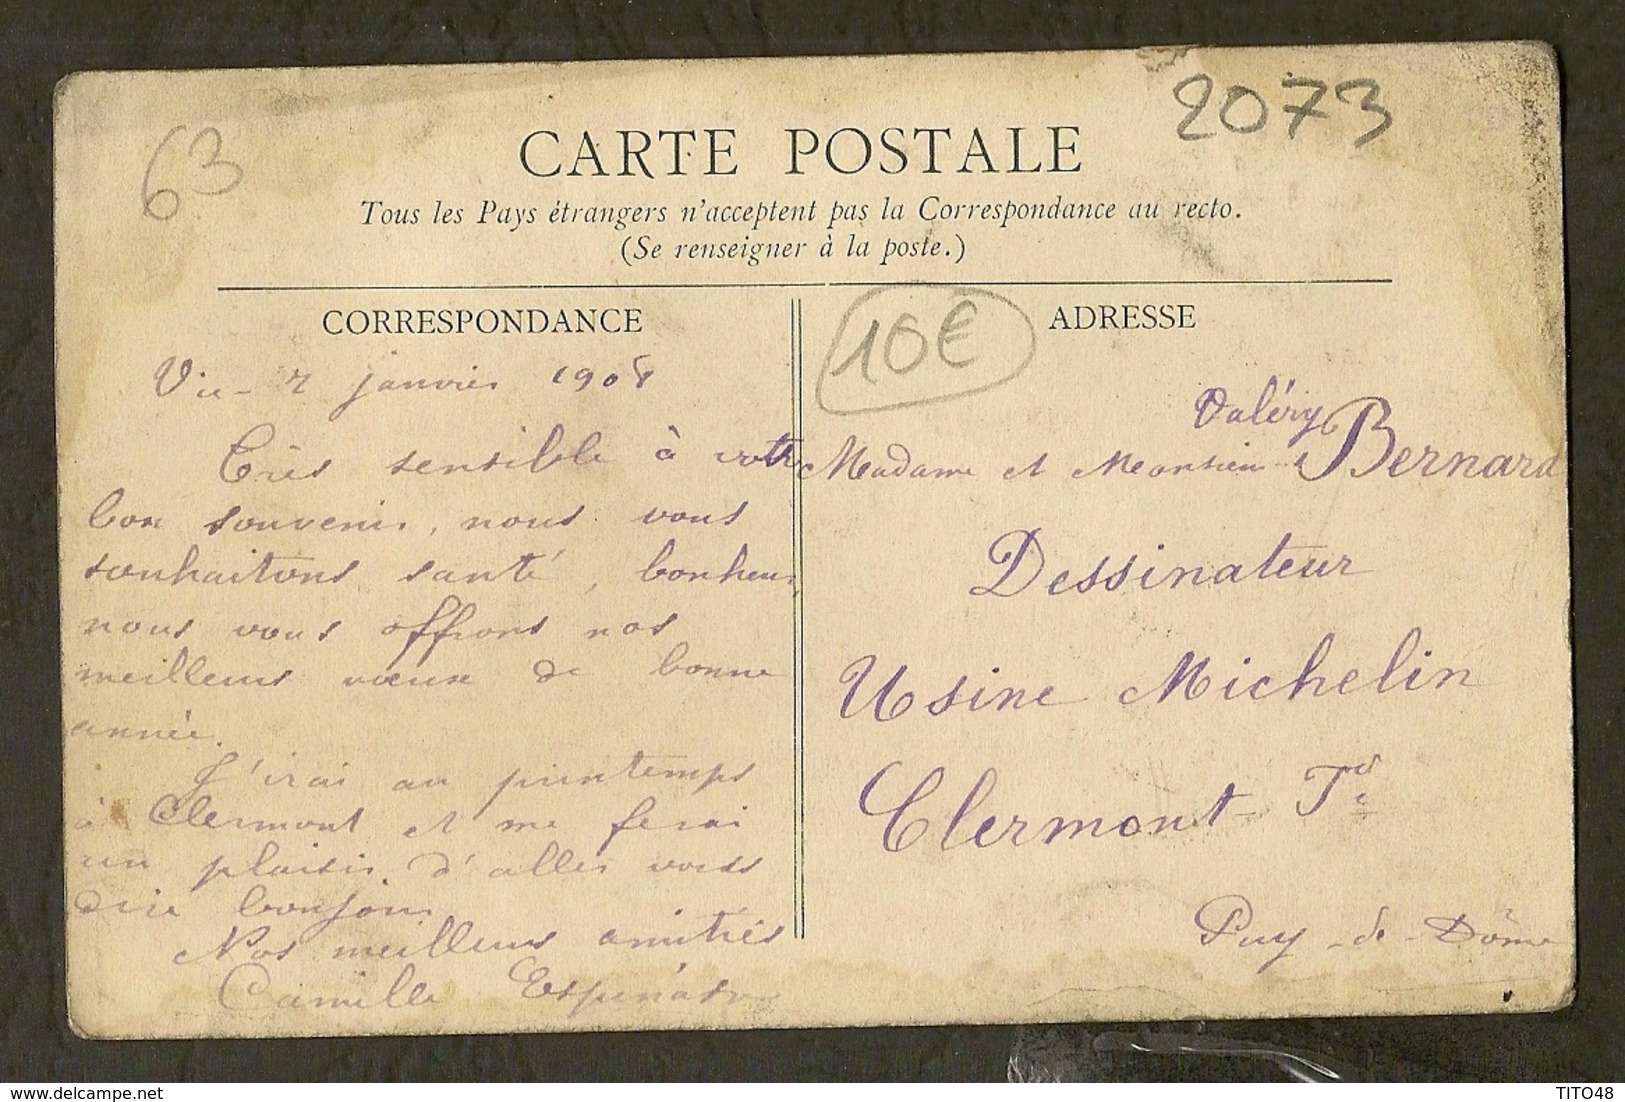 63
2073
CARTE POSTALE
Tous les Pays étrangers n'acceptent pas la Correspondance au recto.
(Se renseigner à la poste.)
CORRESPONDANCE
Vic - 2 janvier 1908
Très sensible à votre
bon souvenir, nous vous
souhaitons santé, bonheur,
nous vous offrons nos
meilleurs vœux de bonne
année.
J'irai au printemps
à Clermont et me ferai
un plaisir d'aller vous
dire bonjour
Nos meilleurs amitiés
Camille
10€
ADRESSE
Valéry
Madame et Monsieur Bernard
Dessinateur
Usine Michelin
Clermont-Fd
Puy-de-Dôme
TITO48